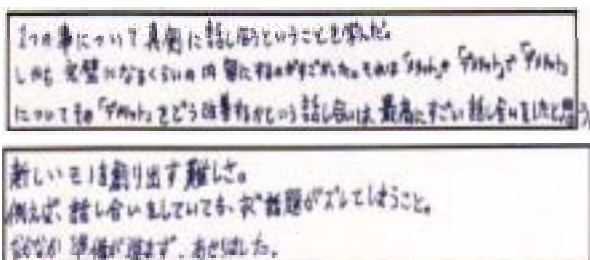 1つの事について真剣に話し合うということを学んだ。
しかも 完璧になるくらいの内容にするのがすごかった。それは「メリット」や「デメリット」で「デメリット」
についてその「デメリット」をどう改善するかという話し合いは、最高にすごい話し合いをしたと思う
新しいモノを創り出す難しさ。
例えば、話し合いをしていても、話題がズレてしまうこと。
なかなか 準備が進まず、あせりました。